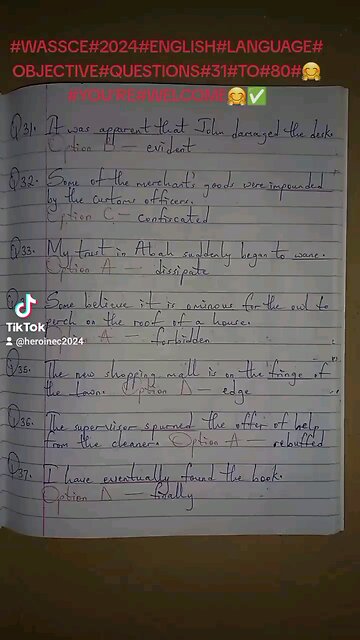 #WASSCE#2024#ENGLISH#LANGUAGE#
OBJECTIVE#QUESTIONS#31#TO#80#🤗
#YOU'RE#WELCOME🤗✅
Q31. It was apparent that John damaged the desk.
Option — evident
Q32. Some of the merchant's goods were impounded
by the customs officers.
Option C — confiscated
Q33. My trust in Abah suddenly began to wane.
Option A — dissipate
Some believe it is ominous for the owl to
perch on the roof of a house.
A — forbidden
Q35. The new shopping mall is on the fringe of
the town. Option D — edge
Q36. The supervisor spurned the offer of help
from the cleaner. Option A — rebuffed
Q37. I have eventually found the book.
Option D — finally
TikTok
@heroinec2024